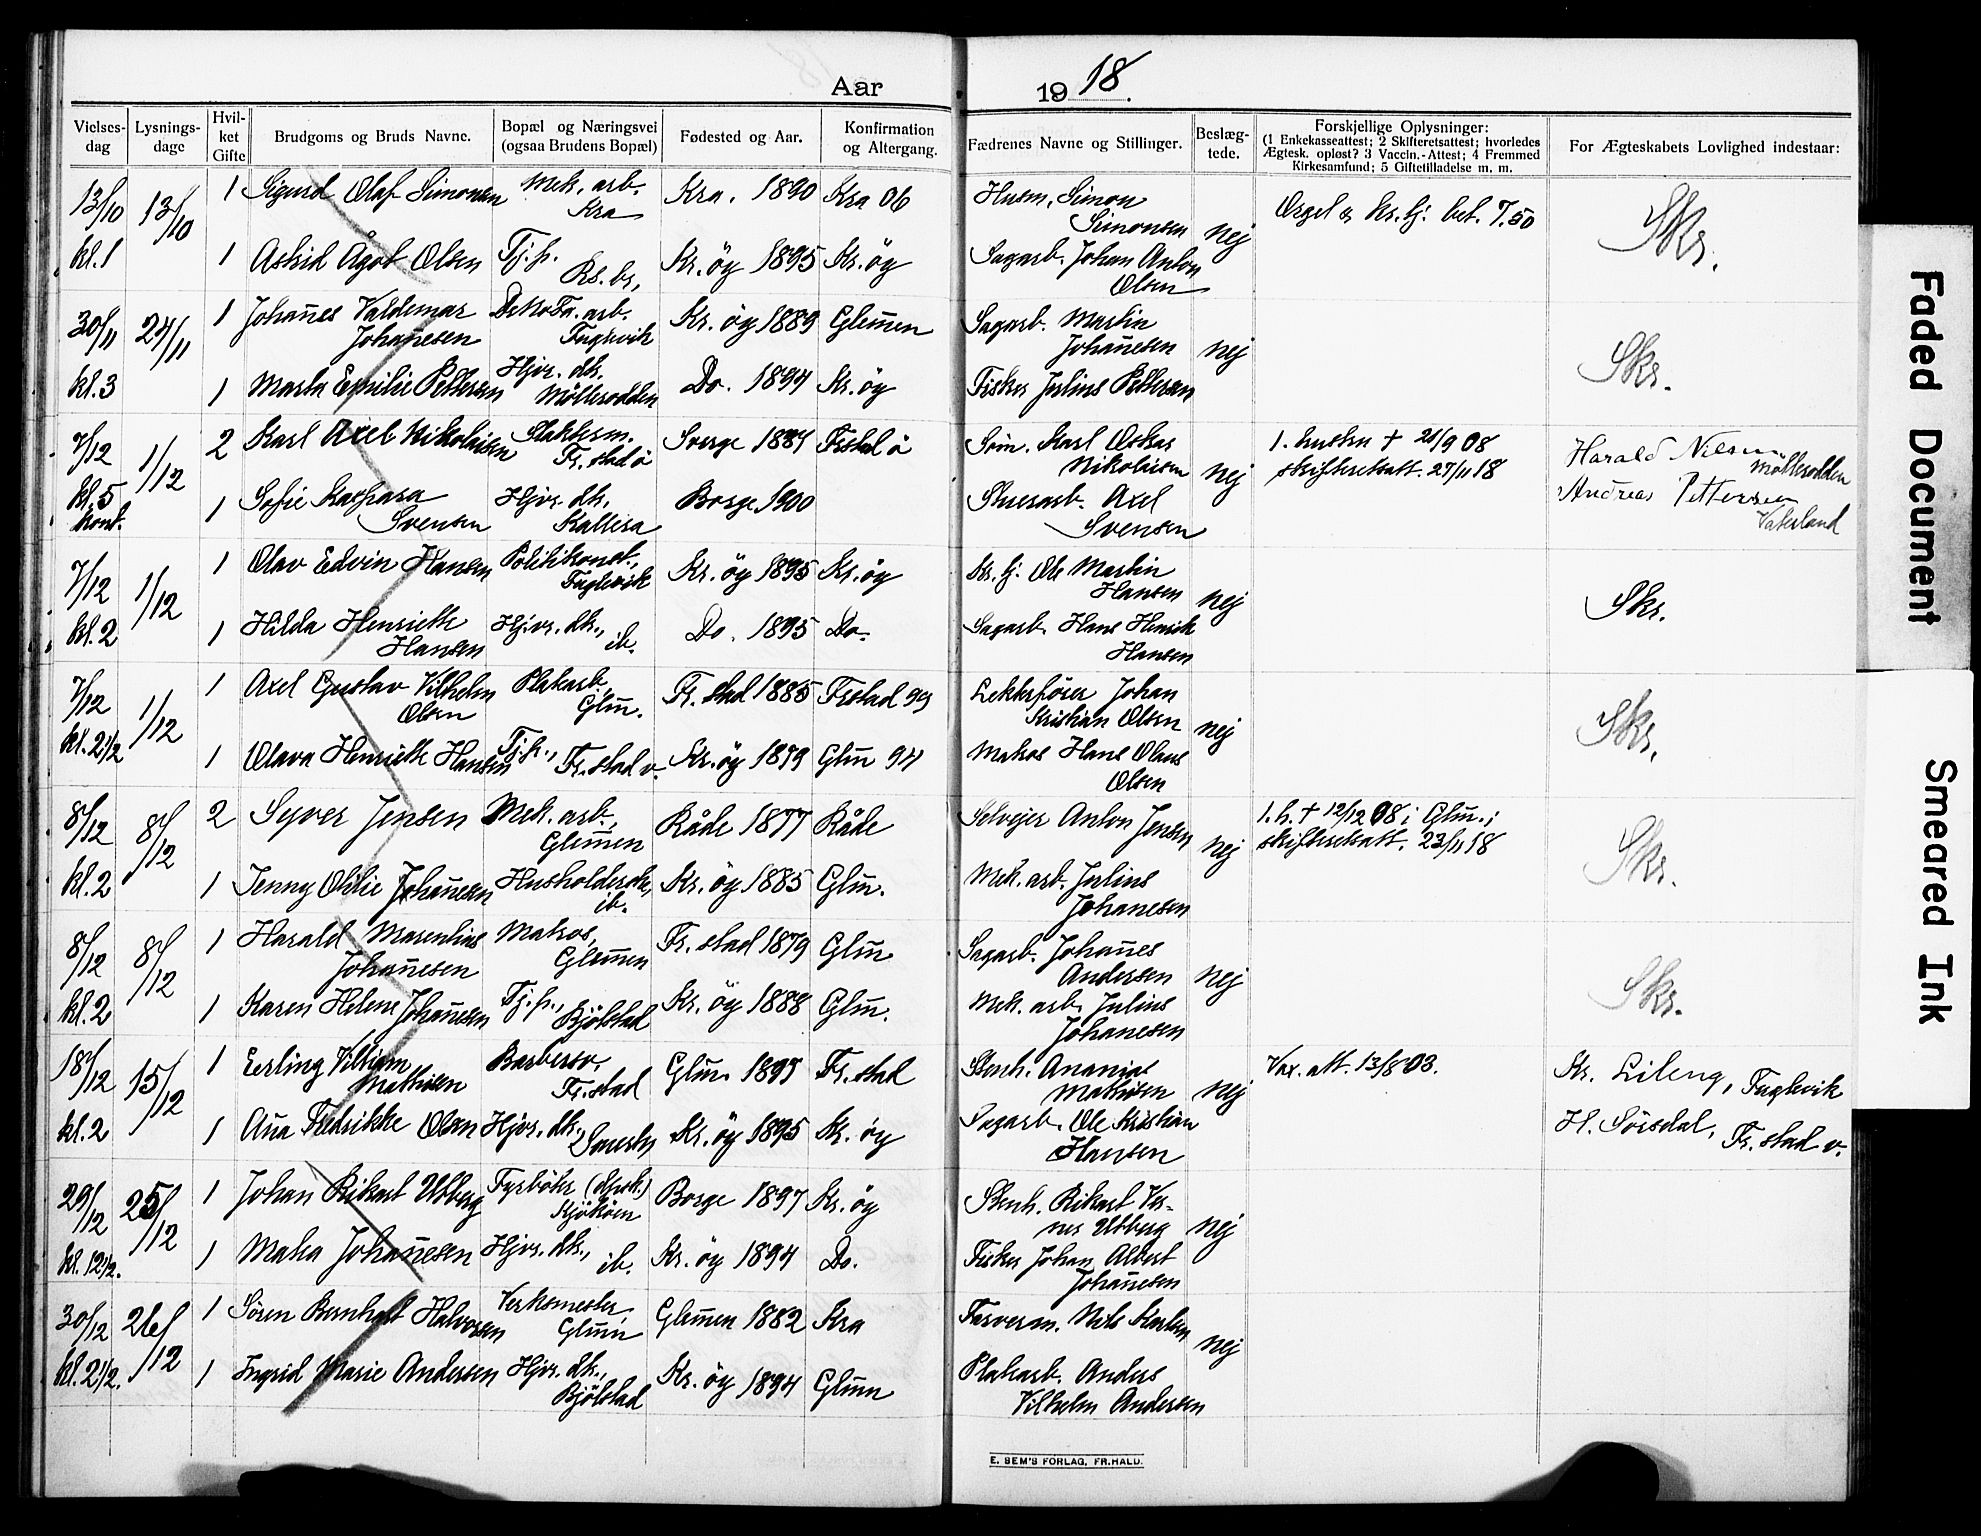 Aar 1918.
Vielses-dag
Lysnings-dage
Hvil-ket Gifte
Brudgoms og Bruds Navne.
Bopæl og Næringsvei (ogsaa Brudens Bopæl)
Fødested og Aar.
Konfirmation og Altergang.
Fædrenes Navne og Stillinger.
Beslæg-tede.
Forskjellige Oplysninger:
(1 Enkekasseattest; 2 Skifteretsattest; hvorledes
Ægtesk. opløst? 3 Vaccin.-Attest; 4 Fremmed
Kirkesamfund; 5 Giftetilladelse m. m.
For Ægteskabets Lovlighed indestaar:
13/10 13/10 1 Sigurd Olaf Simonsen Mek. arb. Kra Kra. 1890 Kra 06 Husm. Simon Simonsen nej Orgel & kr. tj. bet. 7.50 Skr.
kl. 1 1 Astrid Ågot Olsen Tj.p. Kr. öy 1895 Kr. öy Sagarb. Johan Anton Olsen
30/11 24/11 1 Johañes Valdemar Johañesen arb. Fuglevik Kr. öy 1889 Glem̄en Sagarb. Martin Johañesen nej Skr.
kl. 3 1 Marta Emilie Pettersen Hjvr. dtr. Möllerodden Do. 1894 Kr. öy Fisker Julius Pettersen
7/12 1/12 2 Karl Axel Nikolaisen Fr.stad ö Sverge 1884 Frstad ö Söm. Karl Oskar Nikolaisen nej 1. hustru † 21/9 08 skifteretsatt. 27/11 18 Harald Nilsen Möllerodden
kl. 5 kont. 1 Sofie Kaspara Svensen Hjvr. dtr. Kallera Borge 1900 Stuerarb. Axel Svensen Andreas Pettersen Vaterland
7/12 1/12 1 Olav Edvin Hansen Politikonst., Fuglevik Kr. öy 1895 Kr. öy Kr. tj. Ole Martin Hansen nej Skr.
kl. 2 1 Hilda Henriette Hansen Hjvr. dtr., ib. Do. 1895 Do. Sagarb. Hans Henrik Hansen
7/12 1/12 1 Axel Gustav Vilhelm Olsen Platearb. Glm̄. Fr. stad 1885 Frstad 99 Lekterfører Johan Kristian Olsen nej Skr.
kl. 2 1/2 1 Olava Henriette Hansen Tj.p., Fr. stad v. Kr. öy 1879 Glm̄ 94 Matros Hans Olaus Olsen
8/12 8/12 2 Syver Jensen Mek. arb., Glem̄en Råde 1877 Råde Selvejer Anton Jensen nej 1. h. † 12/12 08 i Glm̄.; skifteretsatt. 23/11 18 Skr.
kl. 2 1 Jenny Otilie Johañesen Husholderske, ib. Kr. öy 1885 Glm̄. Mek. arb. Julius Johañesen
8/12 8/12 1 Harald Marentius Johañesen Matros, Glem̄en Fr. stad 1879 Glm̄ Sagarb. Johañes Andersen nej Skr.
kl. 2 1 Karen Helene Johañesen Tj.p., Bjölstad Kr. öy 1888 Glm̄. Mek. arb. Julius Johañesen
18/12 15/12 1 Erling Villiam Mathisen Barbersv. Fr.stad Glm̄. Fr. stad Stenh. Ananias Mathisen nej Vax. att. 13/8 03. Kr. Lileng, Fuglevik
kl. 2 1 Aña Fredrikke Olsen Hjvr. dtr., Kr. öy 1895 Kr. öy Sagarb. Ole Kristian Hansen H. Sörsdal, Fr. stad v.
29/12 25/12 1 Johan Rikart Utberg Fyrböter Borge 1897 Kr. öy Stenh. Rikart Verner Utberg nej
kl. 12 1/2. 1 Maha Johañesen Hjvr. dtr., ib. Kr. öy 1894 Do. Fisker Johan Albert Johañesen
30/12 26/12 1 Sören Bernhart Halvorsen Verksmester, Glm̄ Glem̄en 1882 Kra Farverm. Nils Karlsen nej
kl. 2 1/2. 1 Ingrid Marie Andersen Hjvr. dtr., Bjölstad Kr. öy 1894 Glm̄n Platearb. Anders Vilhelm Andersen
E. SEM'S FORLAG, FR.HALD.
Faded Document
Smeared Ink